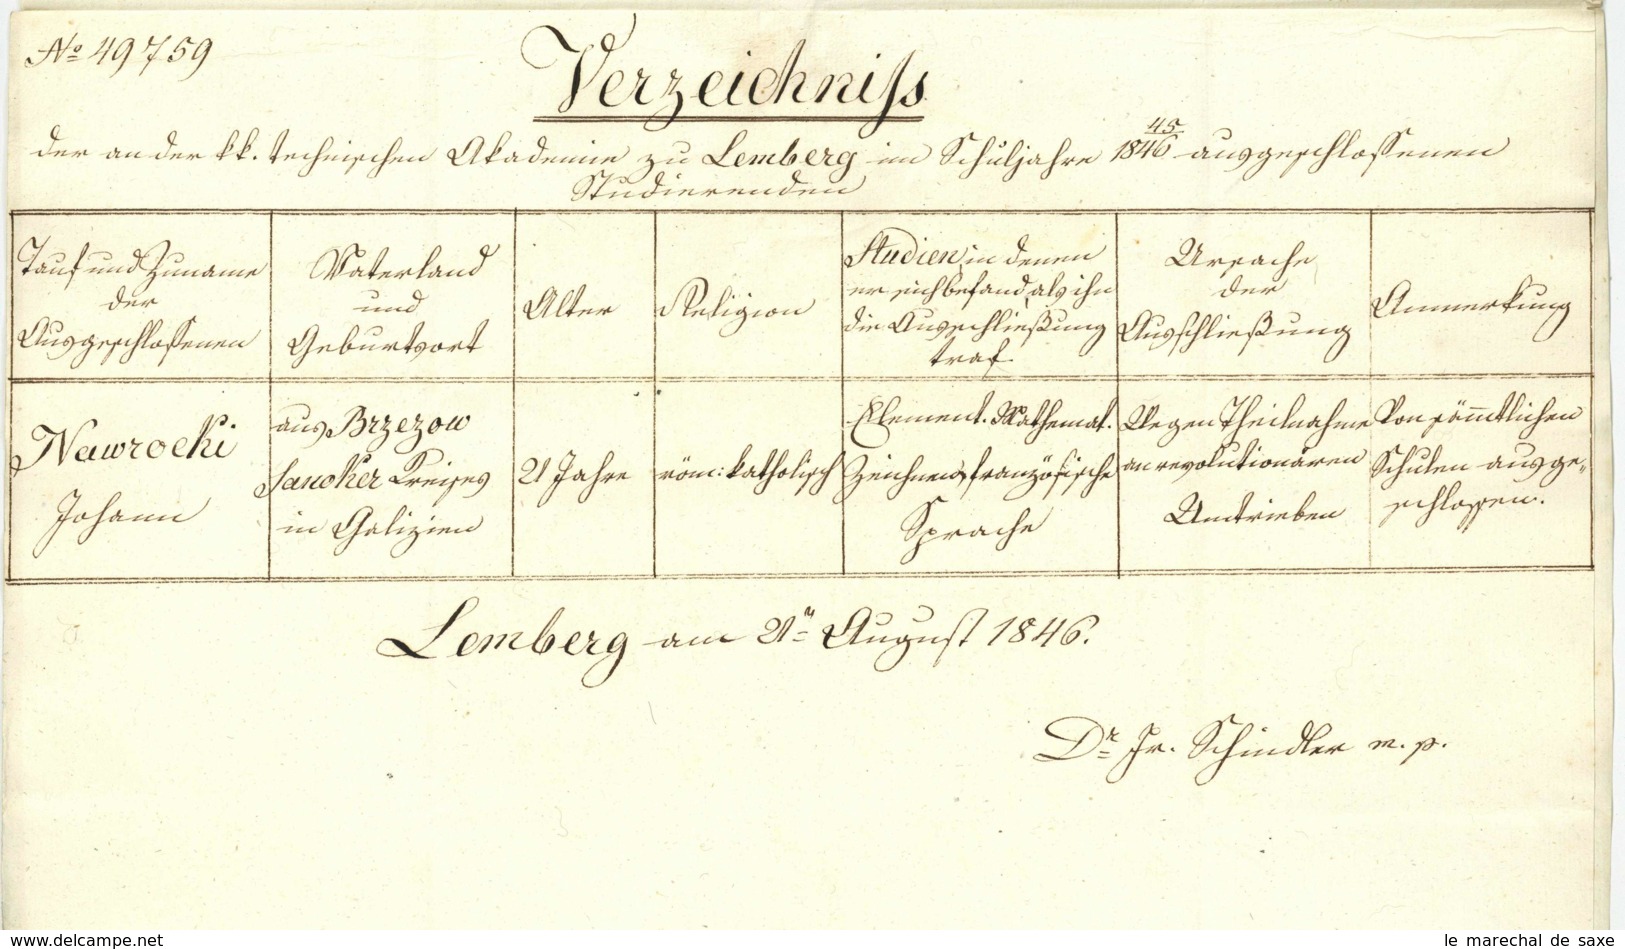 No 49759
Verzeichniss
der an der kk. technischen Akademie zu Lemberg im Schuljahre 1845/46 ausgeschlossenen
Studierenden
Tauf und Zuname
der
Ausgeschlossenen
Vaterland
und
Geburtsort
Alter
Religion
Studien in denen
er sich befand, als ihn
die Ausschließung
traf.
Ursache
der
Ausschließung
Anmerkung
Nawrocki
Johann
aus Brzezow
Sanoker Kreises
in Galizien
21 Jahre
röm: katholisch
Element. Mathemat.
Zeichnen, französische
Sprache
Wegen Theilnahme
an revolutionären
Umtrieben
Von sämmtlichen
Schulen ausge-
schlossen.
Lemberg am 21n August 1846.
Dr Fr. Schindler m. p.
www.delcampe.net
le marechal de saxe